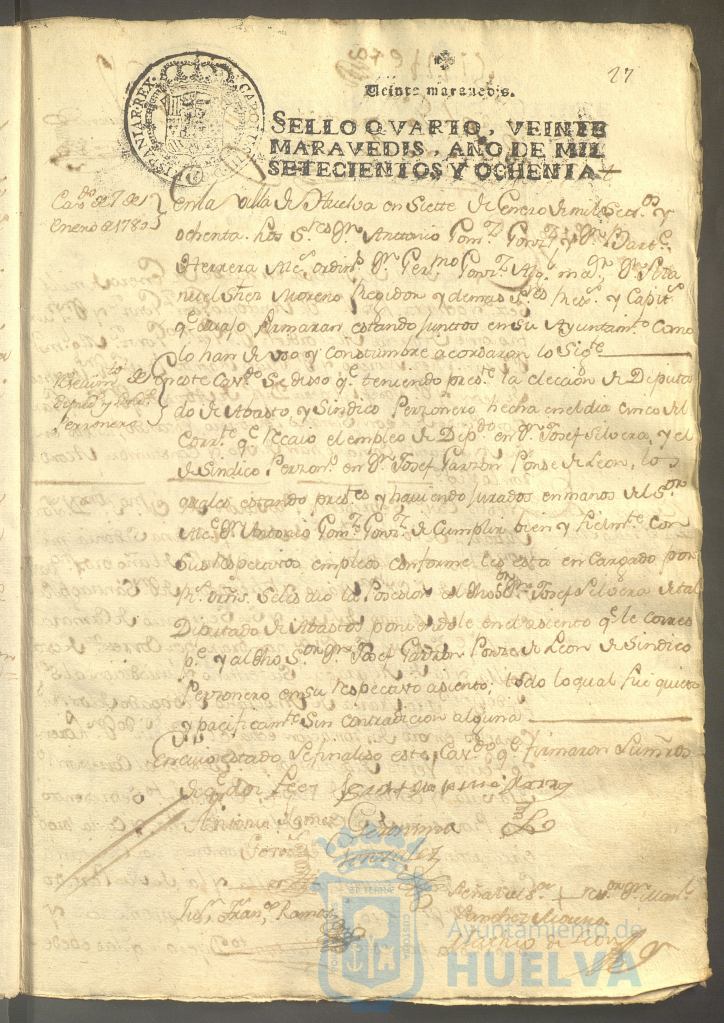 27
Veinte maravedis.
SELLO QVARTO, VEINTE
MARAVEDIS, AÑO DE MIL
SETECIENTOS Y OCHENTA
HISPANIAR. REX. CAROLUS
Cav.do de 7 de
Enero de 1780
en la Villa de Huelva en Siette de Enero de mil Set.s y
ochenta los S.res D.n Antonio Gom.z Gonz.z y D.n Bart.e
Herrera Alc.s ordin.s D.n Ger.mo Gonz.z
nuel Shez Moreno Regidor y demas
q.e avajo firmaran estando Juntos en su Ayuntam.to Como
lo han de uso y Constumbre acordaron lo Sig.te
Recivim.to de
diput.do y Sindi.
Perzonero
En este Cav.do Se dixo q.e teniendo pres.te la eleccion de Diputa
do de Abasto y Sindico Perzonero hecha en el dia cinco del
Corr.te q.e Recaio el empleo de Dip.do en D.n Josef Silvera, y el
de Sindico Perzon.o en D.n Josef Garzon Ponse de Leon, los
quales estando pres.tes y haviendo Jurados en manos del S.or
Alc.e D.n Antonio Gom.z Gonz.z de Cumplir bien y fielm.te Con
Sus Respectivos empleos conforme les esta en Cargado por
Se les dio la Posesion al dho S.or D.n Josef Silvera de tal
Diputado de Abastos poniendole en el asiento q.e le corres
p.e y al dho S.or D.n Josef Garzon Ponze de Leon de Sindico
Perzonero en su Respectivo asiento, todo lo qual fue quieta
y pacificam.te Sin contradicion alguna
En cuio estado Se finaliso este Cav.do q.e firmaron Sum.rds
Antonio Gomez
Geronimo
Gonzalez
Señal del S.or + Rex.or D.n Man.l
Sanchez Moreno
Fran.co Ramos
Ayuntamiento de
HUELVA